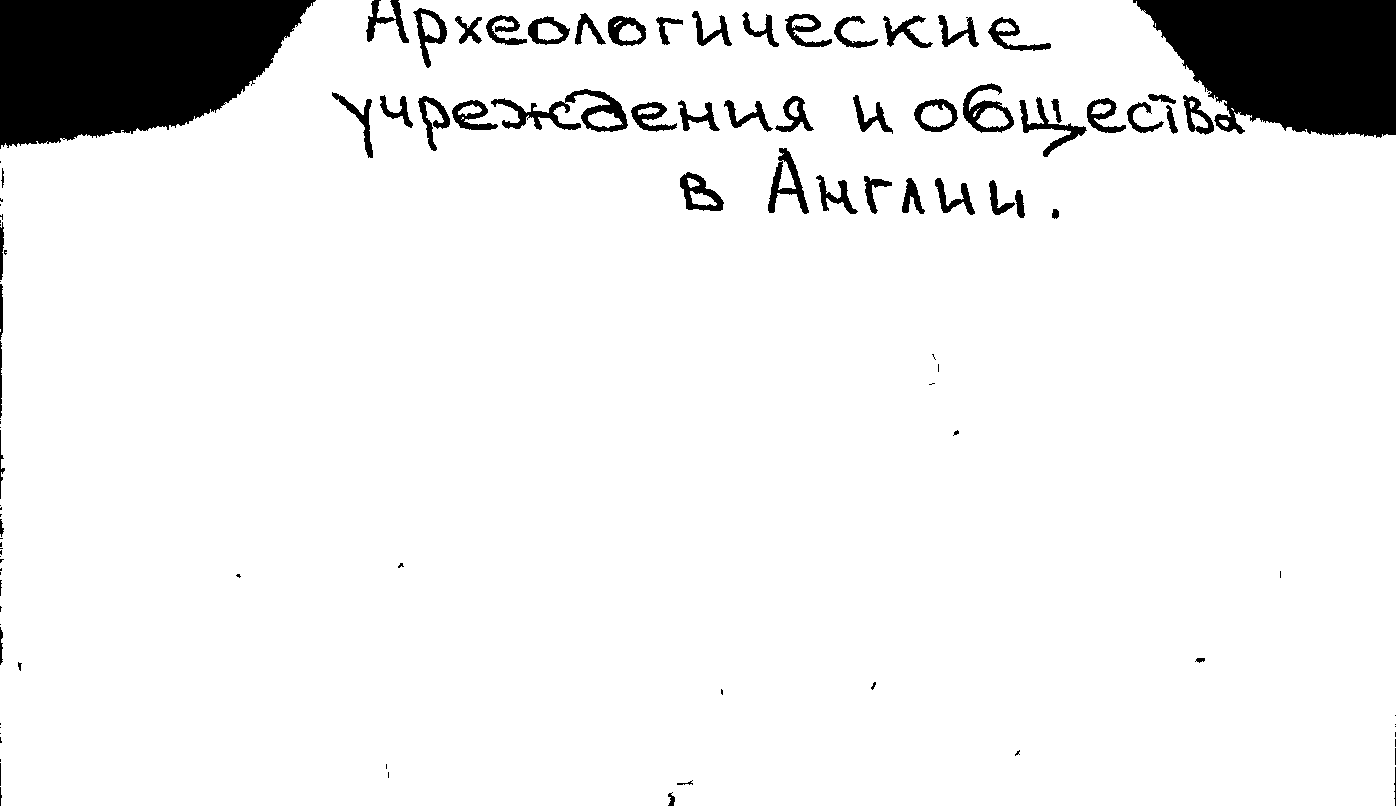 Археологические
учреждения и общества
в Англии.